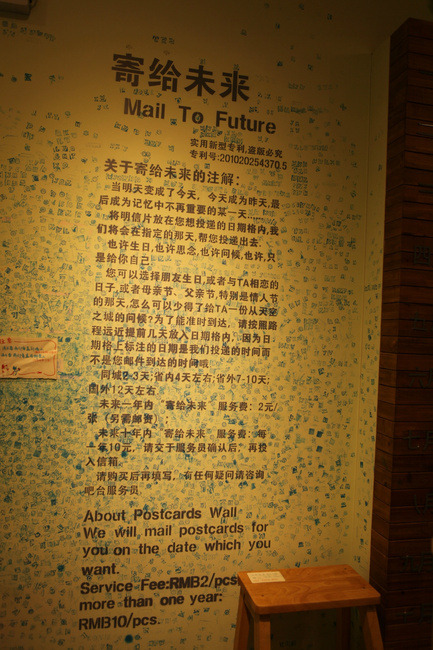 寄给未来
Mail To Future
实用新型专利,盗版必究
专利号:201020254370.5
关于寄给未来的注解:
当明天变成了今天,今天成为昨天,最
后成为记忆中不再重要的某一天……
将明信片放在您想投递的日期格内,我
们将会在指定的那天,帮您投递出去.
也许生日,也许思念,也许问候,也许,只
是给你自己.
您可以选择朋友生日,或者与TA相恋的
日子,或者母亲节、父亲节,特别是情人节
的那天,怎么可以少得了给TA一份从天空
之城的问候?为了能准时到达,请按照路
程远近提前几天放入日期格内,因为日
期格上标注的日期是我们投递的时间而
不是您邮件到达的时间哦
同城2-3天;省内4天左右;省外7-10天;
国外12天左右.
未来一年内 寄给未来 服务费:2元/
张 (另需邮资)
未来十年内 寄给未来 服务费:每
一年10元,请交于服务员确认后,再投
入信箱.
请购买后再填写,有任何疑问请咨询
吧台服务员
About Postcards Wall
We will mail postcards for
you on the date which you
want.
Service Fee:RMB2/pcs
more than one year:
RMB10/pcs.